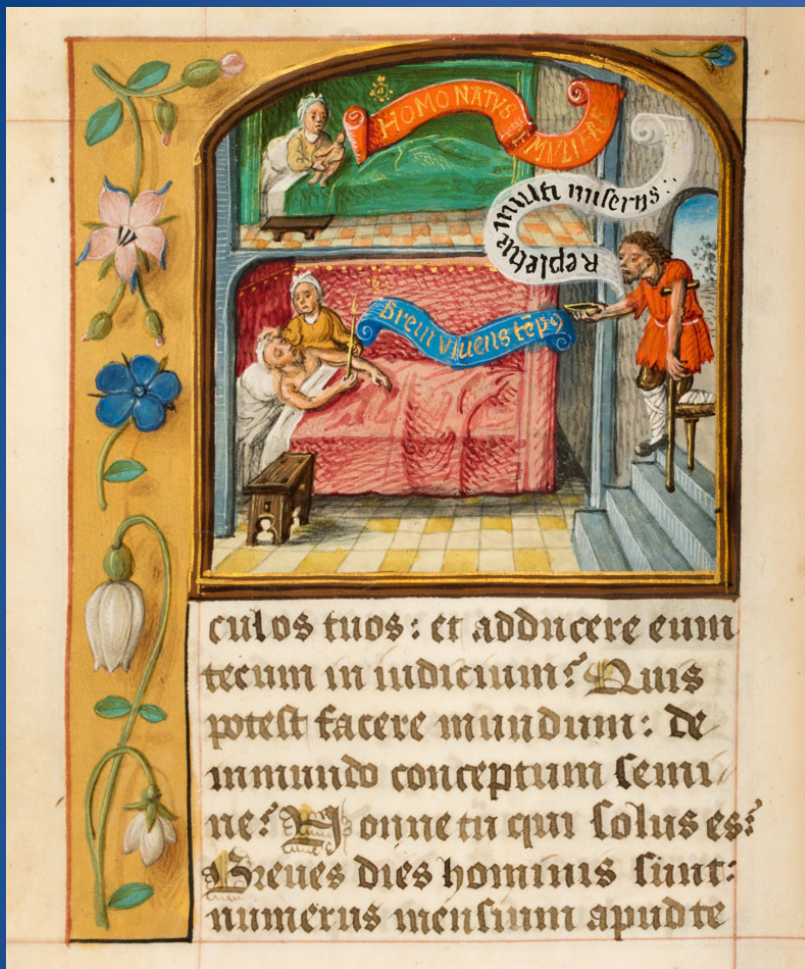 HOMO NATVS
MVLIERE
Repletur multi miserys
breui viuens tēp9
culos tuos: et adducere eum
tecum in iudicium? Quis
potest facere mundum: de
inmundo conceptum semi
ne? Nonne tu qui solus es?
Breues dies hominis sunt:
numerus mensium apud te